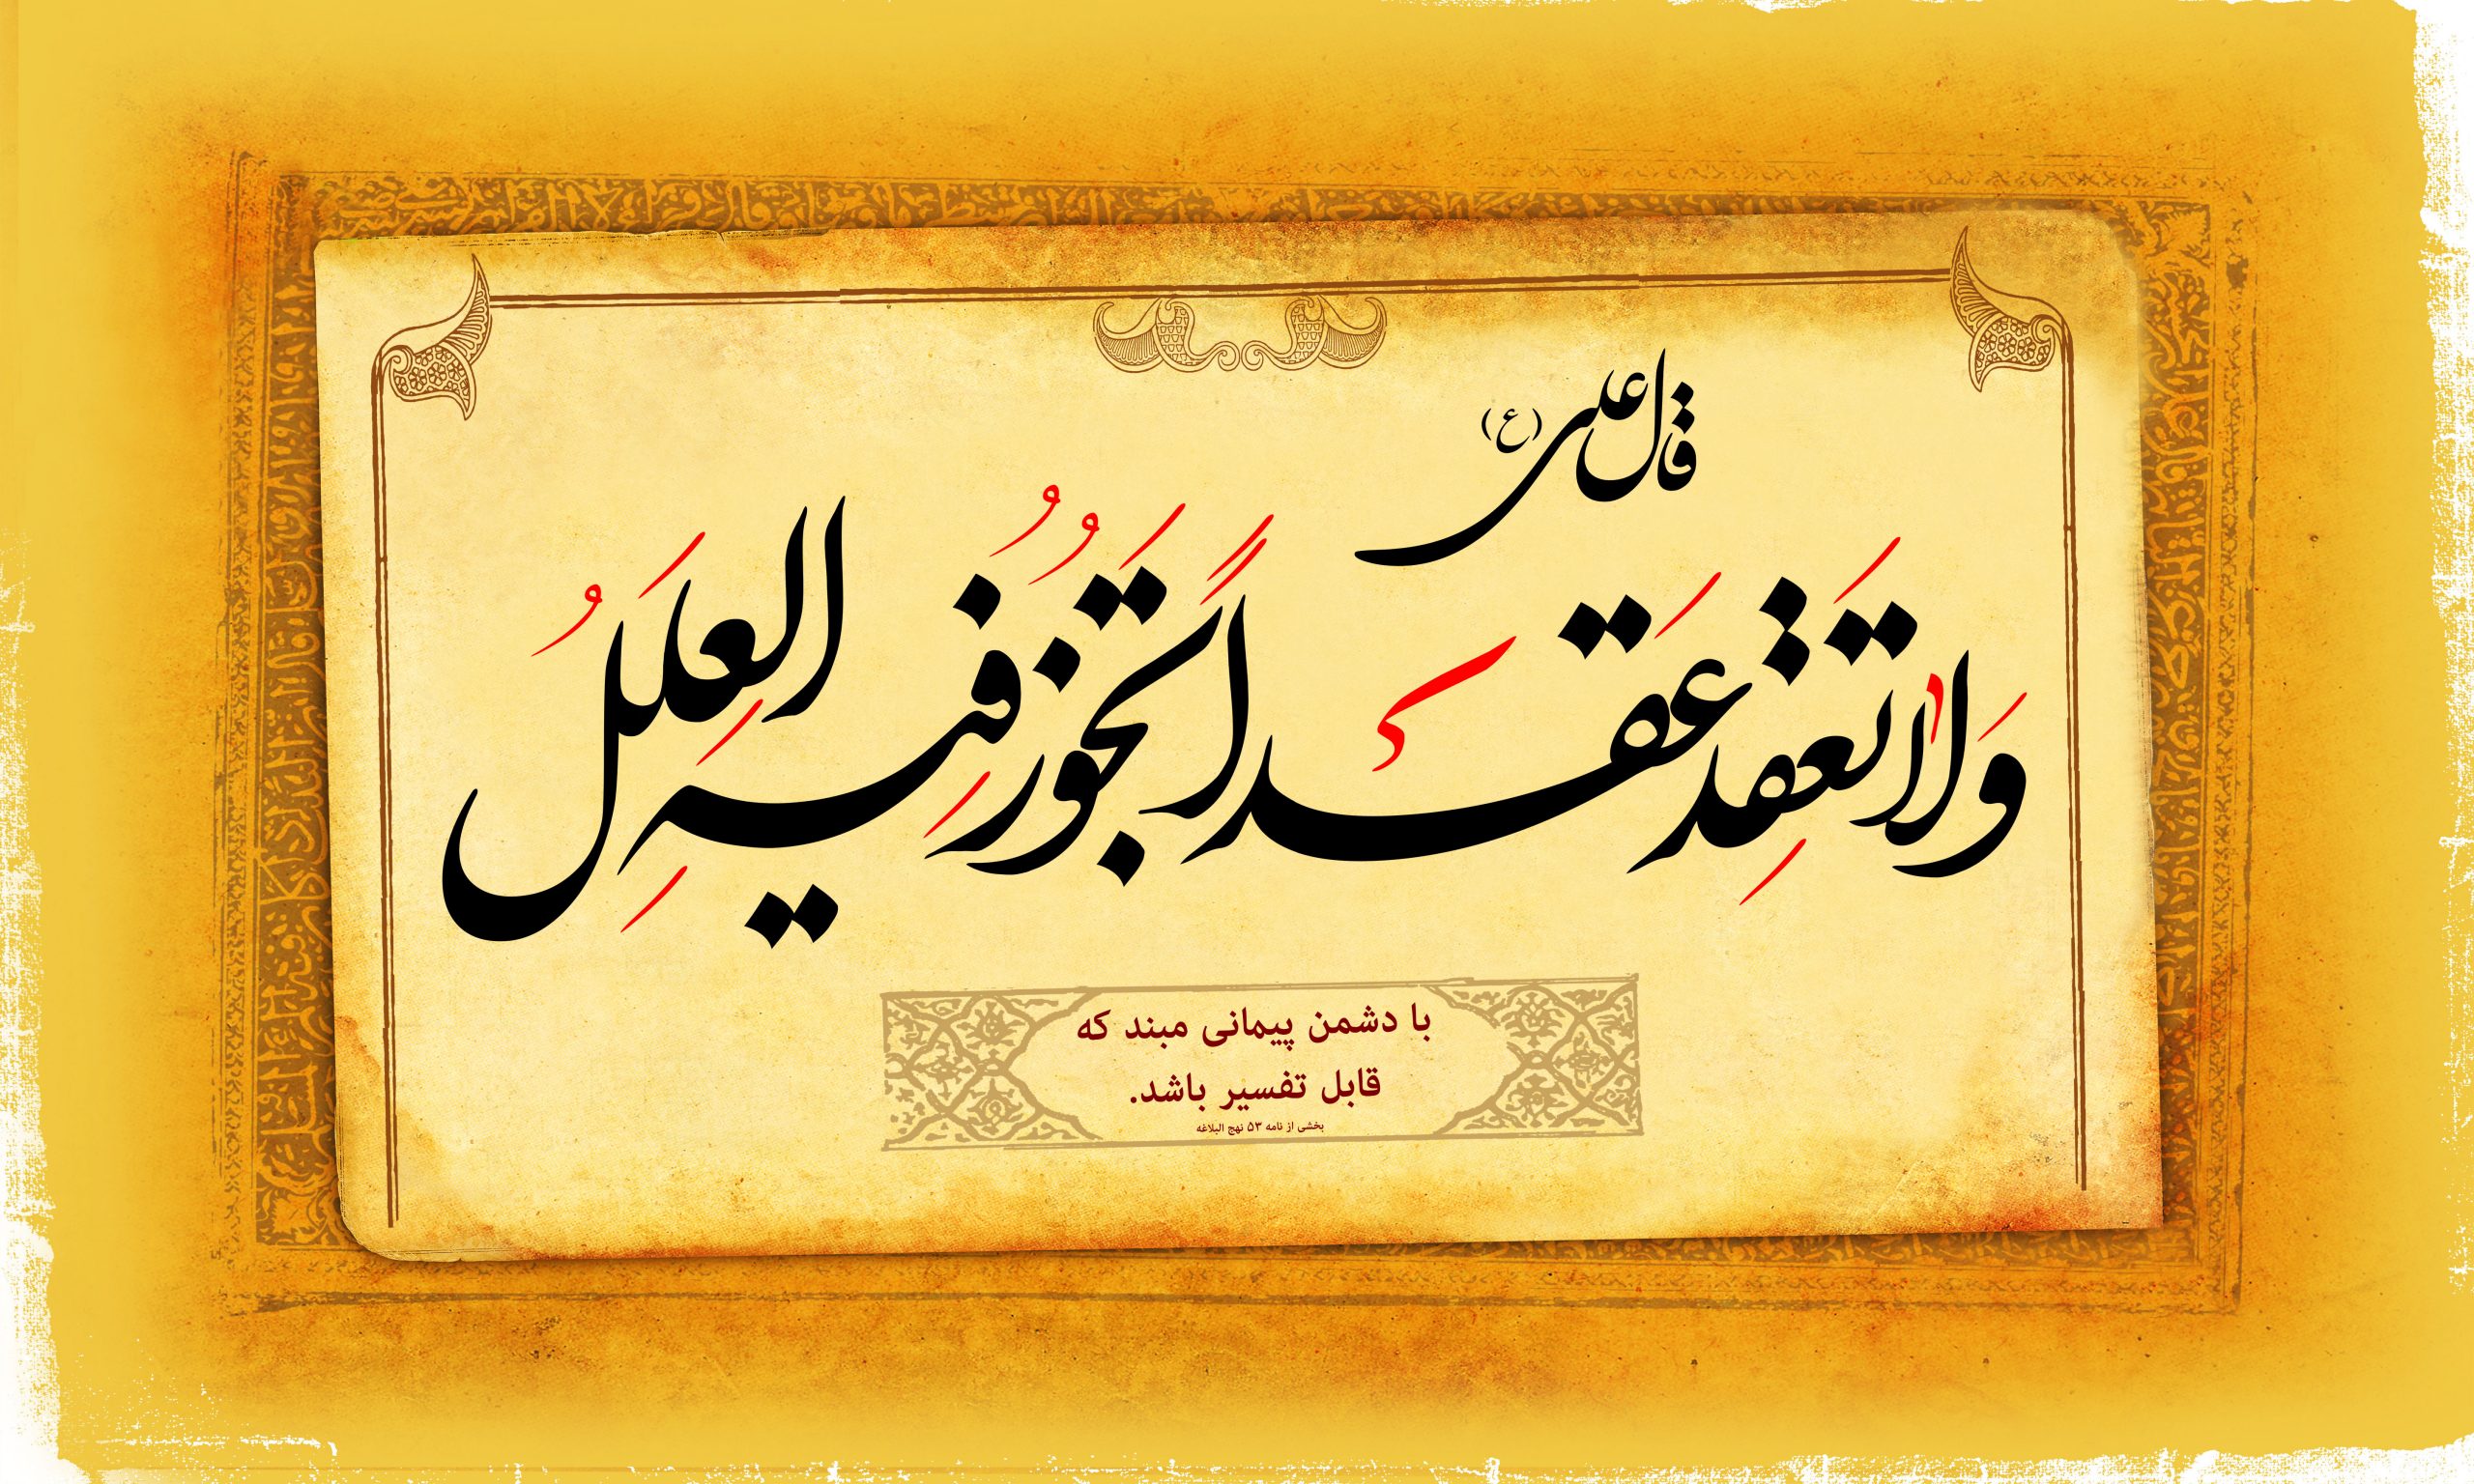 قال علی (ع)
وَلا تَعقِد عَقداً تَجُوزُ فِیهِ العِلَلُ
با دشمن پیمانی مبند که
قابل تفسیر باشد.
بخشی از نامه ۵۳ نهج البلاغه